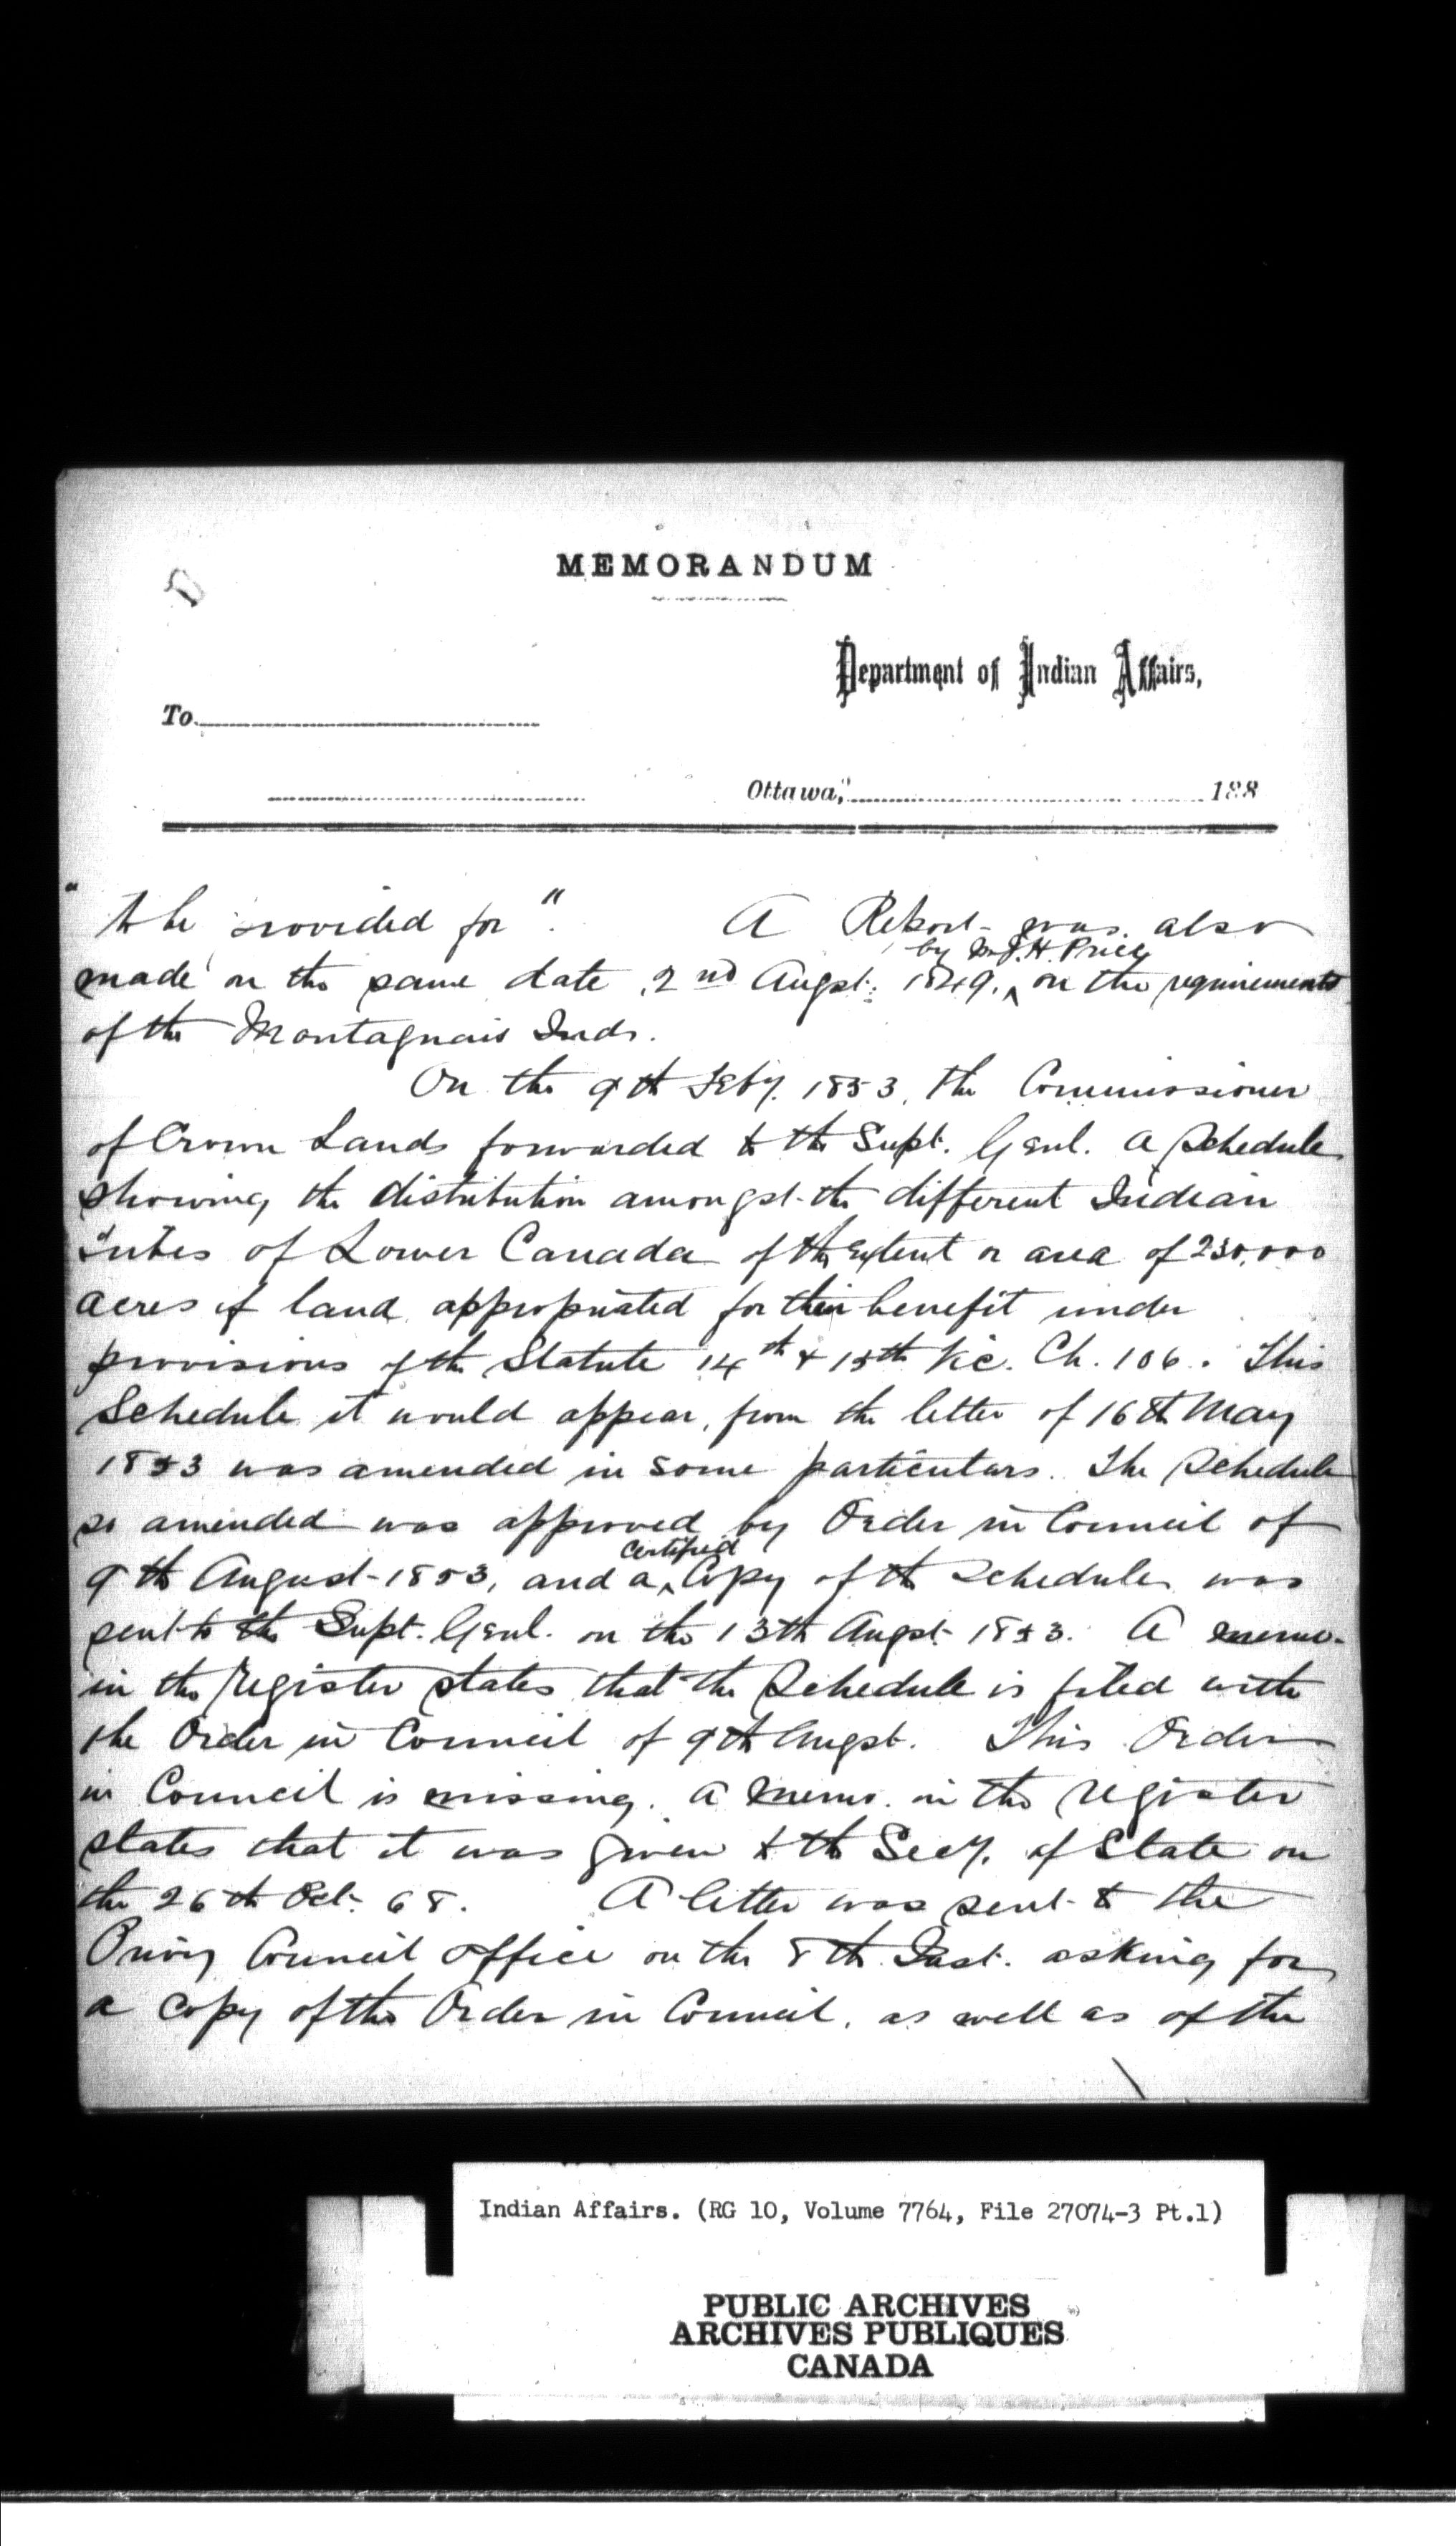 MEMORANDUM
Department of Indian Affairs,
To
Ottawa, 188
"to be provided for". A Report was also
by Mr J. H. Price
made on the same date 2nd Augst: 1849. ^ on the requirements
of the Montagnais Inds.
On the 9th Feby. 1853, the Commissioner
of Crown Lands forwarded to the Supt. Genl. a Schedule
showing the distribution amongst the different Indian
tribes of Lower Canada of the extent or area of 230,000
acres of land appropriated for their benefit under
provisions of the Statute 14th & 15th Vic. Ch. 106. This
Schedule it would appear, from the letter of 16th May
1853 was amended in some particulars. The Schedule
so amended was approved by Order in Council of
certified
9th August 1853, and a ^ Copy of the Schedule was
sent to the Supt. Genl. on the 13th Augst 1853. A memo.
in the register states that the Schedule is filed with
the Order in Council of 9th Augst. This Order
in Council is missing. A memo. in the register
states that it was given to the Secy. of State on
the 26th Oct. 68. A letter was sent to the
Privy Council Office on the 8th Inst. asking for
a copy of the Order in Council, as well as of the
Indian Affairs. (RG 10, Volume 7764, File 27074-3 Pt.1)
PUBLIC ARCHIVES
ARCHIVES PUBLIQUES
CANADA